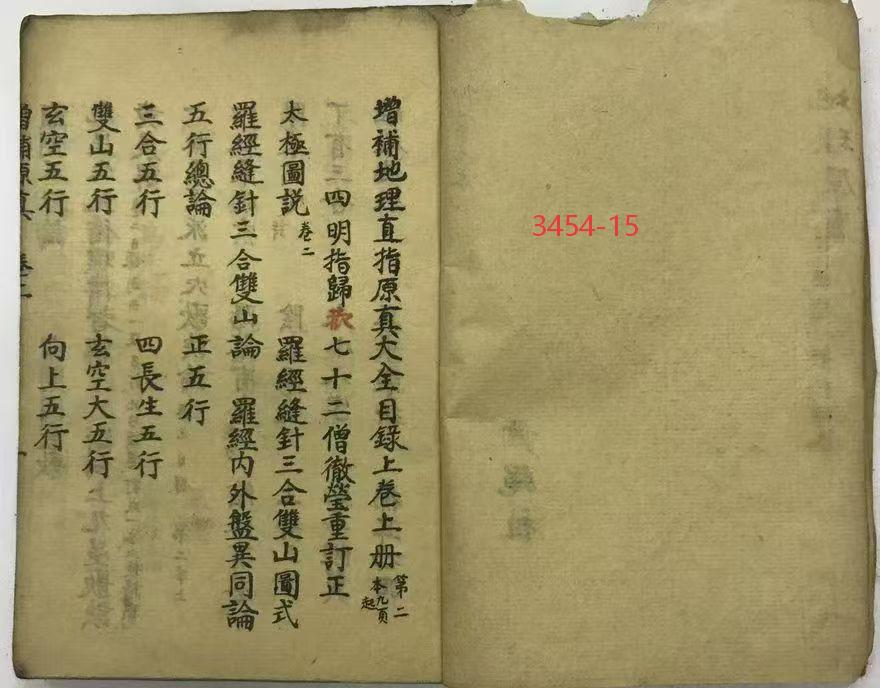 3454-15
增補地理直指原真大全目錄上卷上册 第二本九頁起
四明指歸 七十二僧徹瑩重訂正
太極圖説 卷二 羅經縫針三合雙山圖式
羅經縫針三合雙山論 羅經内外盤異同論
五行總論 正五行
三合五行 四長生五行
雙山五行 玄空大五行
玄空五行 向上五行
增補原真 卷二